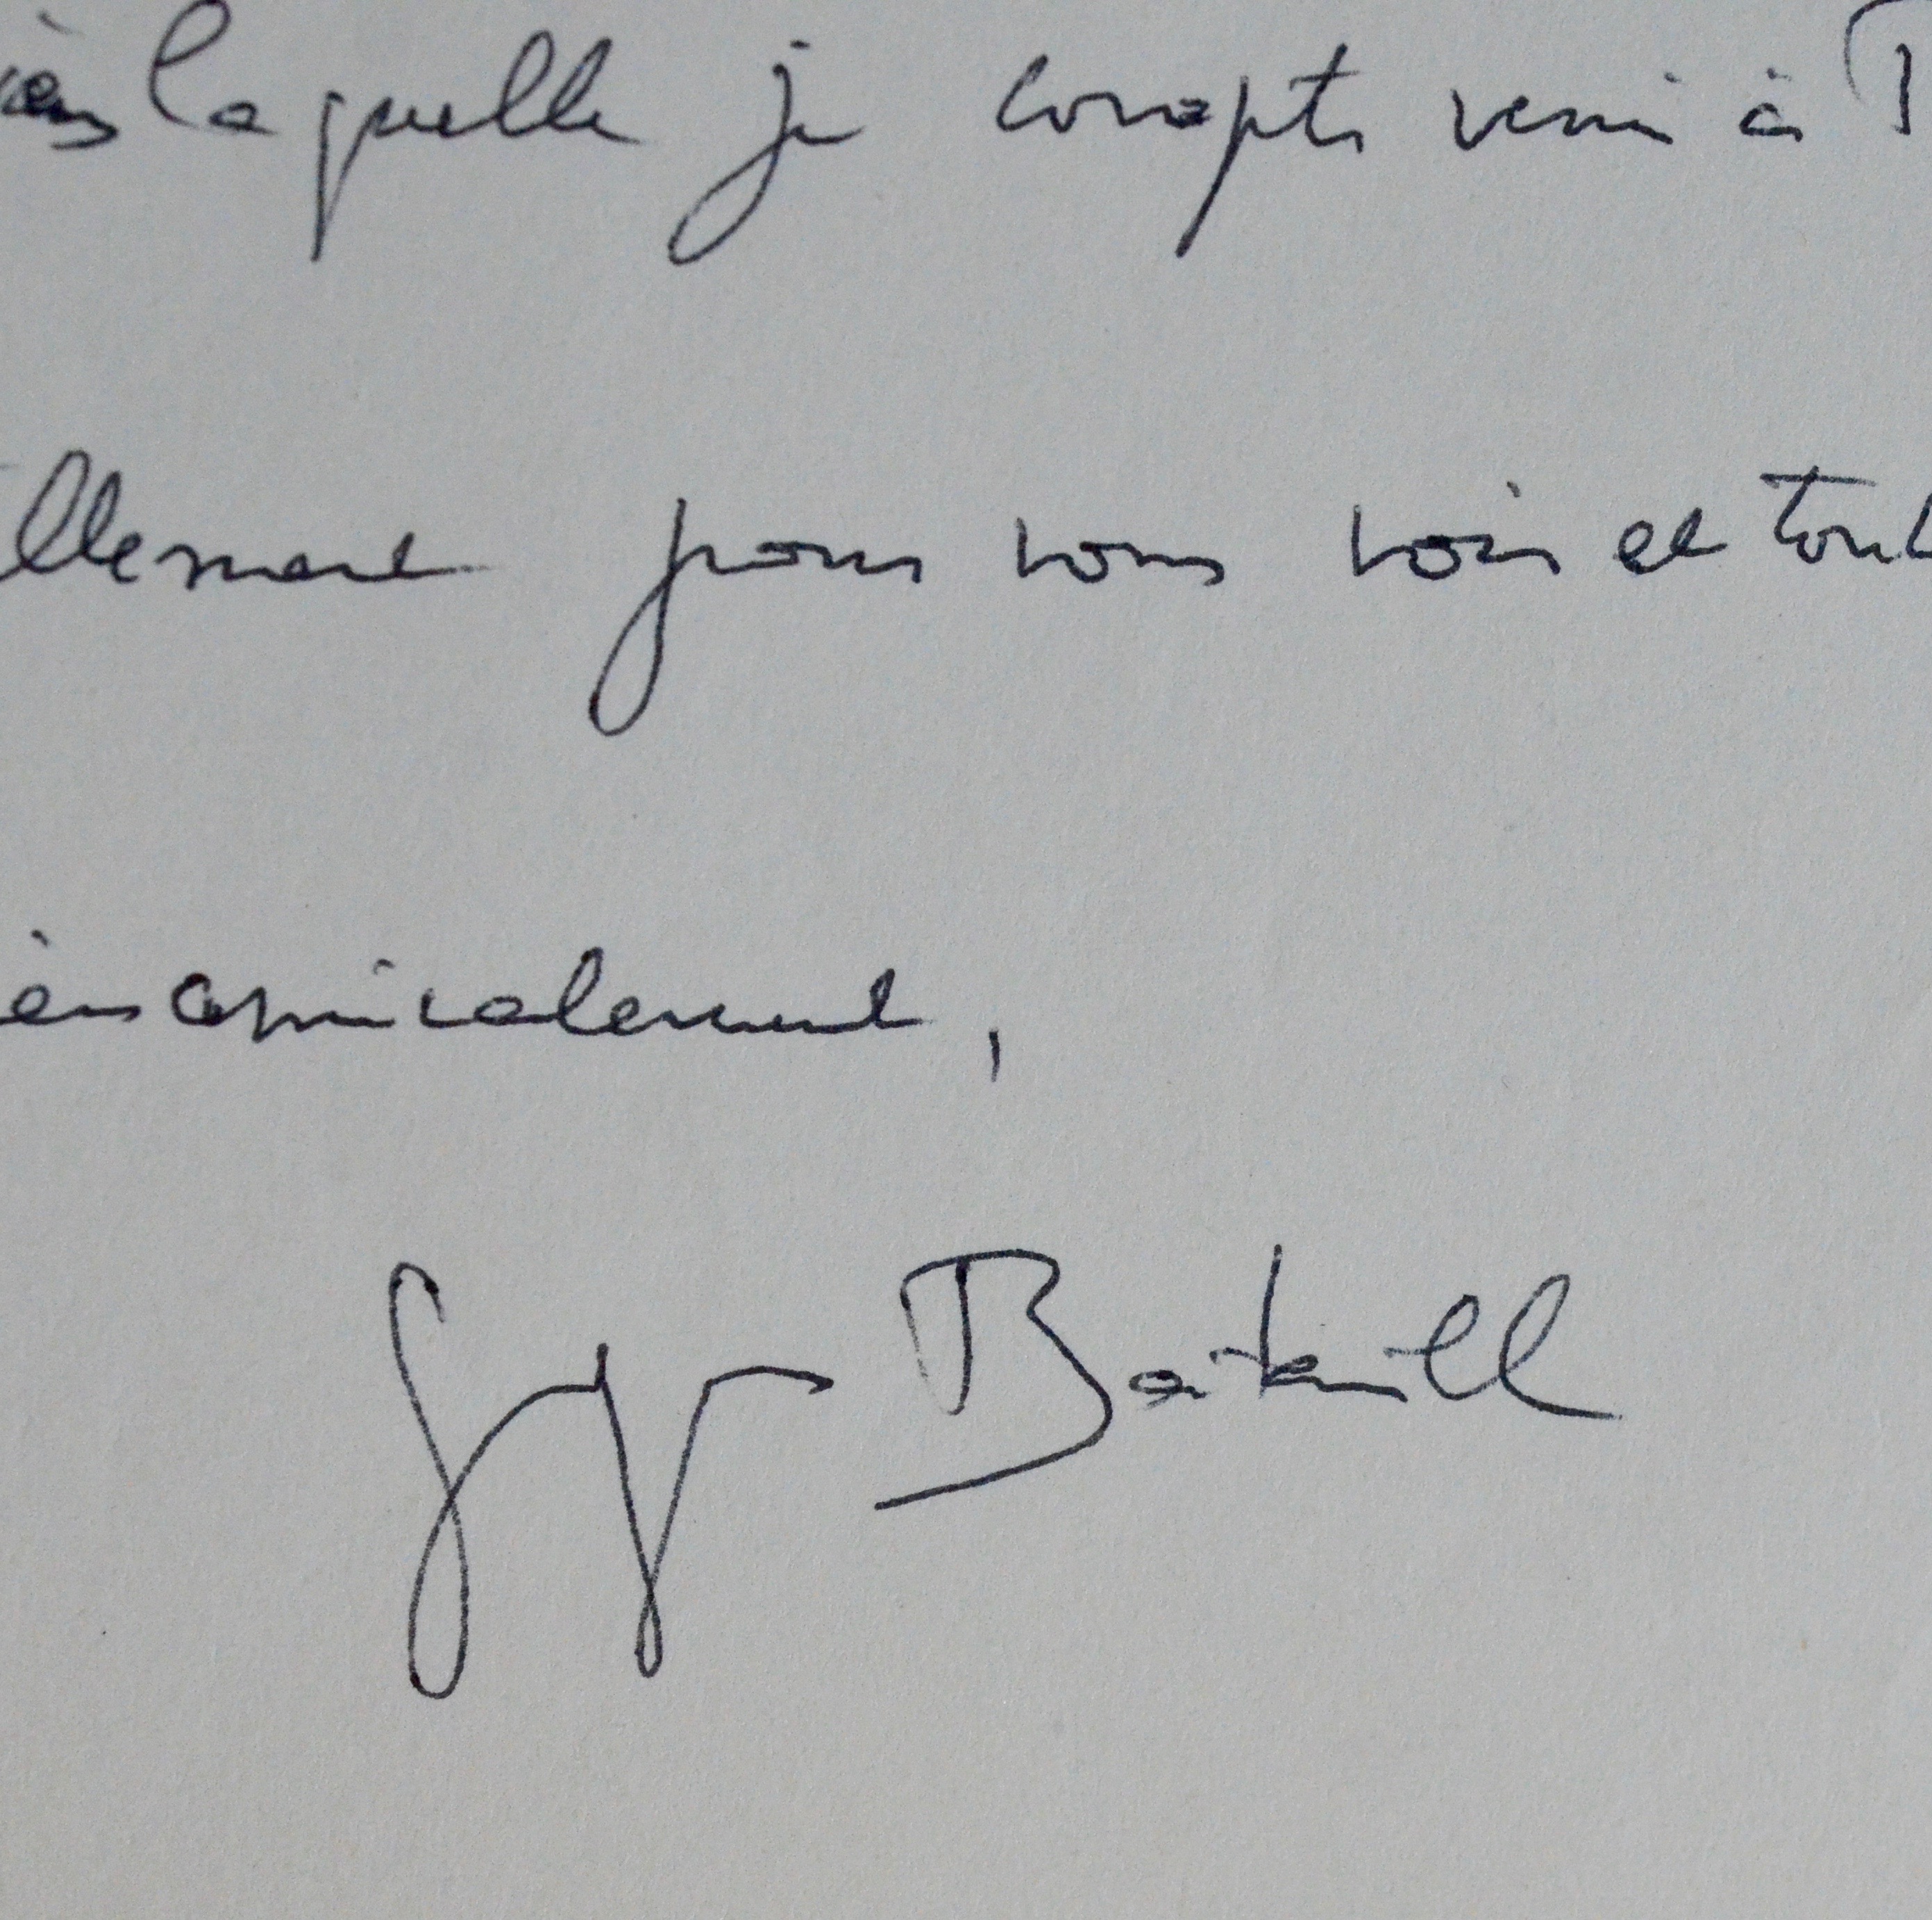 ès laquelle je compte venir à
llement pour vous voir et tout
ès amicalement,
Georges Bataille